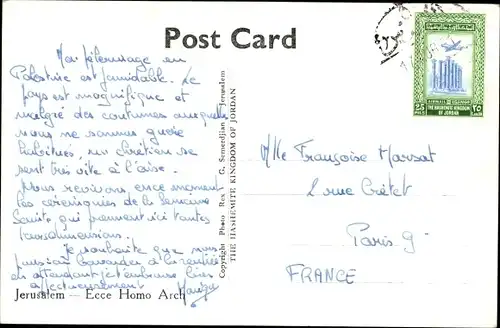 Post Card
Mon pèlerinage en
Palestine est formidable. Le
pays est magnifique et
malgré des coutumes auxquelles
nous ne sommes guère
habitués, un chrétien se
sent très vite à l'aise.
Nous revivons en ce moment
les cérémonies de la Semaine
Sainte qui prennent ici toutes
leurs dimensions.
Je souhaite que nous
puissions bavarder à la rentrée
en attendant je t'embrasse bien
affectueusement
Jerusalem — Ecce Homo Arch
Copyright Photo Rex — G. Semerdjian — Jerusalem
THE HASHEMITE KINGDOM OF JORDAN
AIRMAIL
25 FILS
THE HASHEMITE KINGDOM
OF JORDAN
٢٥
Mlle Françoise Marsat
2 rue Crétet
Paris 9e
FRANCE